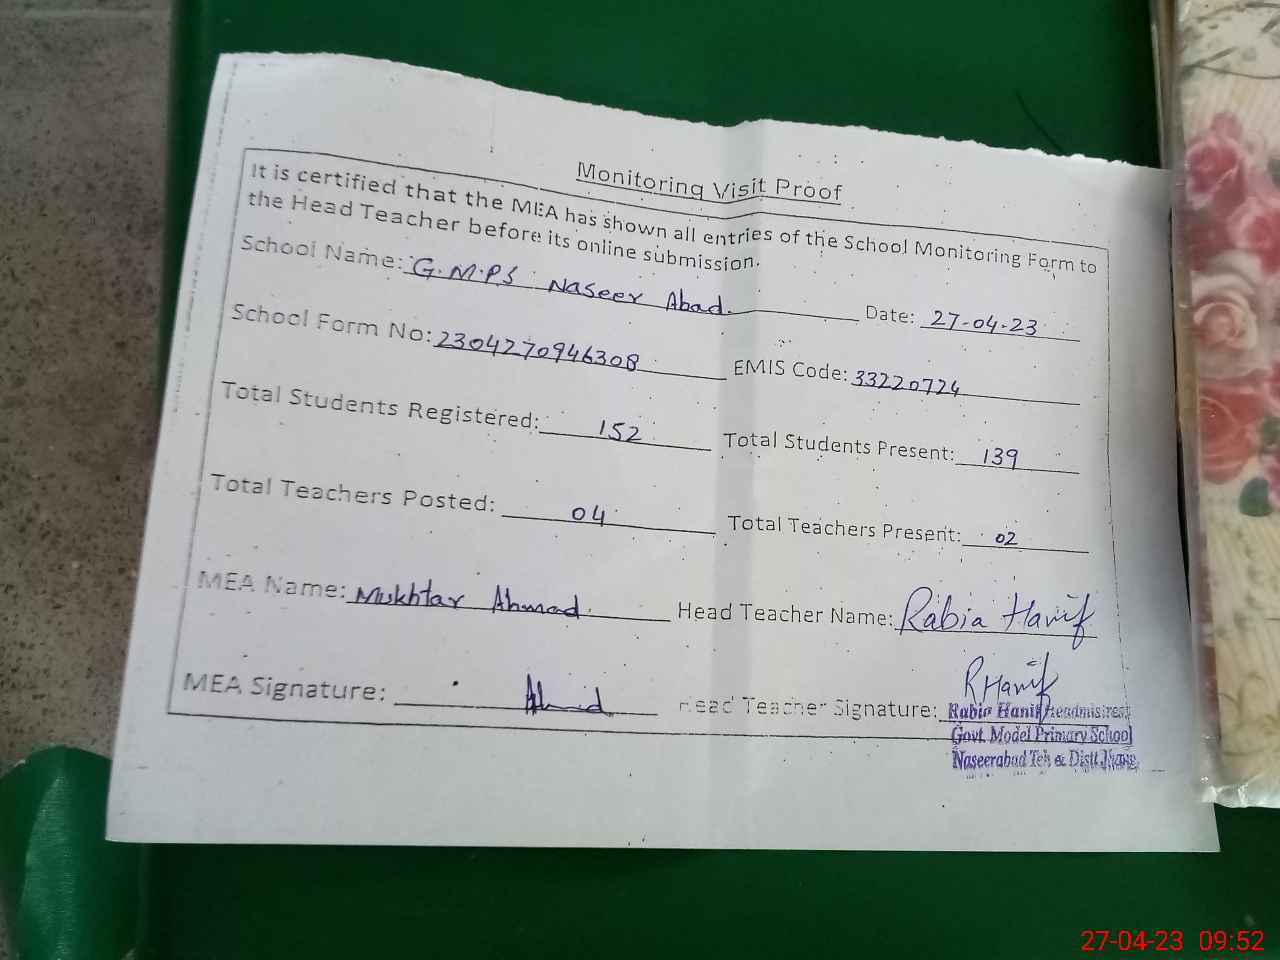 Monitoring Visit Proof
It is certified that the MEA has shown all entries of the School Monitoring Form to
the Head Teacher before its online submission.
School Name: G.M.P.S Naseer Abad. Date: 27-04-23
School Form No: 2304270946308 EMIS Code: 33220724
Total Students Registered: 152 Total Students Present: 139
Total Teachers Posted: 04 Total Teachers Present: 02
MEA Name: Mukhtar Ahmad. Head Teacher Name: Rabia Hanif
MEA Signature: Head Teacher Signature: RHanif
Rabia Hanif Headmistress
Govt. Model Primary School
Naseerabad Teh & Distt Jhang
27-04-23 09:52